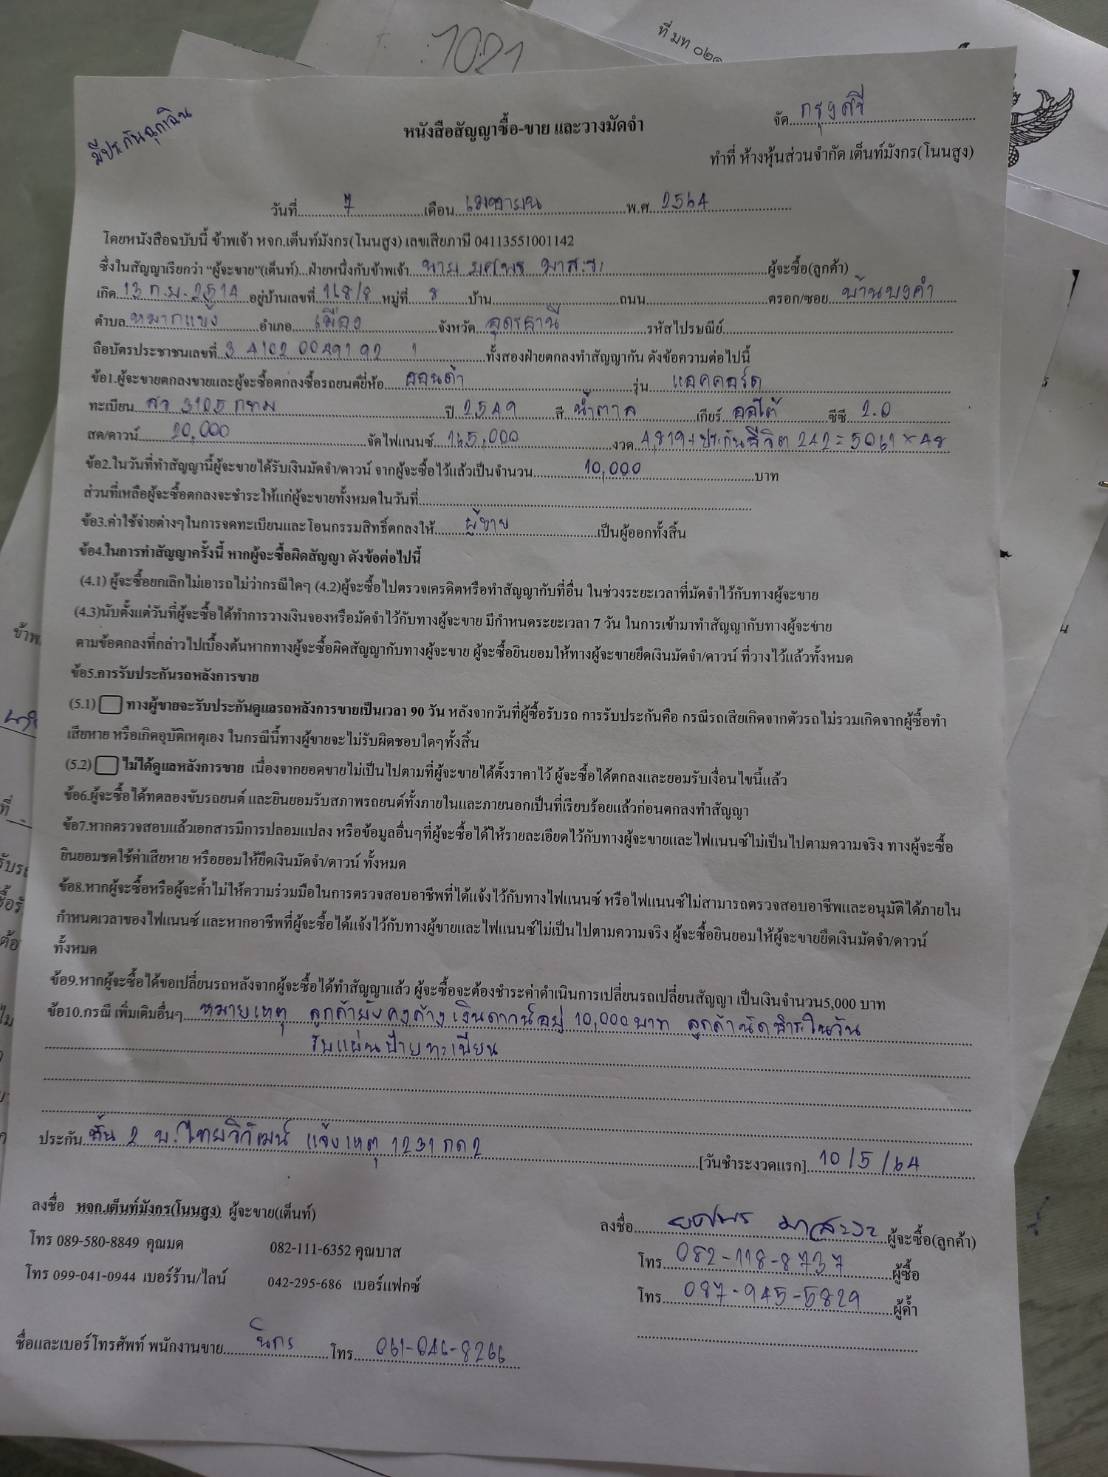 1021
ที่ มท ๐๒๑
มีประกันฉุกเฉิน
จัด กรุงศรี
หนังสือสัญญาซื้อ-ขาย และวางมัดจำ
ทำที่ ห้างหุ้นส่วนจำกัด เต็นท์มังกร(โนนสูง)
วันที่ 7 เดือน เมษายน พ.ศ. 2564
โดยหนังสือฉบับนี้ ข้าพเจ้า หจก.เต็นท์มังกร(โนนสูง) เลขเสียภาษี 04113551001142
ซึ่งในสัญญาเรียกว่า "ผู้จะขาย"(เต็นท์)...ฝ่ายหนึ่งกับข้าพเจ้า นาย ยศพร ผู้จะซื้อ(ลูกค้า)
เกิด 13 ก.พ. 2514 อยู่บ้านเลขที่ 118/8 หมู่ที่ 8 บ้าน ถนน ตรอก/ซอย บ้านบงคำ
ตำบล หมากแข้ง อำเภอ เมือง จังหวัด อุดรธานี รหัสไปรษณีย์
ถือบัตรประชาชนเลขที่ 3 4102 00491 92 1 ทั้งสองฝ่ายตกลงทำสัญญากัน ดังข้อความต่อไปนี้
ข้อ1.ผู้จะขายตกลงขายและผู้จะซื้อตกลงซื้อรถยนต์ยี่ห้อ ฮอนด้า รุ่น แอคคอร์ด
ทะเบียน 3105 กทม ปี 2549 สี น้ำตาล เกียร์ ออโต้ ซีซี 2.0
สด/ดาวน์ 20,000 จัดไฟแนนซ์ 165,000 งวด 4,819 + ประกันชีวิต 242 = 5061 × 48
ข้อ2.ในวันที่ทำสัญญานี้ผู้จะขายได้รับเงินมัดจำ/ดาวน์ จากผู้จะซื้อไว้แล้วเป็นจำนวน 10,000 บาท
ส่วนที่เหลือผู้จะซื้อตกลงจะชำระให้แก่ผู้จะขายทั้งหมดในวันที่
ข้อ3.ค่าใช้จ่ายต่างๆในการจดทะเบียนและโอนกรรมสิทธิ์ตกลงให้ ผู้ขาย เป็นผู้ออกทั้งสิ้น
ข้อ4.ในการทำสัญญาครั้งนี้ หากผู้จะซื้อผิดสัญญา ดังข้อต่อไปนี้
(4.1) ผู้จะซื้อยกเลิกไม่เอารถไม่ว่ากรณีใดๆ (4.2)ผู้จะซื้อไปตรวจเครดิตหรือทำสัญญากับที่อื่น ในช่วงระยะเวลาที่มัดจำไว้กับทางผู้จะขาย
(4.3)นับตั้งแต่วันที่ผู้จะซื้อได้ทำการวางเงินจองหรือมัดจำไว้กับทางผู้จะขาย มีกำหนดระยะเวลา 7 วัน ในการเข้ามาทำสัญญากับทางผู้จะขาย
ตามข้อตกลงที่กล่าวไปเบื้องต้นหากทางผู้จะซื้อผิดสัญญากับทางผู้จะขาย ผู้จะซื้อยินยอมให้ทางผู้จะขายยึดเงินมัดจำ/ดาวน์ ที่วางไว้แล้วทั้งหมด
ข้อ5.การรับประกันรถหลังการขาย
(5.1) ทางผู้ขายจะรับประกันดูแลรถหลังการขายเป็นเวลา 90 วัน หลังจากวันที่ผู้ซื้อรับรถ การรับประกันคือ กรณีรถเสียเกิดจากตัวรถไม่รวมเกิดจากผู้ซื้อทำ
เสียหาย หรือเกิดอุบัติเหตุเอง ในกรณีนี้ทางผู้ขายจะไม่รับผิดชอบใดๆทั้งสิ้น
(5.2) ไม่ได้ดูแลหลังการขาย เนื่องจากยอดขายไม่เป็นไปตามที่ผู้จะขายได้ตั้งราคาไว้ ผู้จะซื้อได้ตกลงและยอมรับเงื่อนไขนี้แล้ว
ข้อ6.ผู้จะซื้อได้ทดลองขับรถยนต์ และยินยอมรับสภาพรถยนต์ทั้งภายในและภายนอกเป็นที่เรียบร้อยแล้วก่อนตกลงทำสัญญา
ข้อ7.หากตรวจสอบแล้วเอกสารมีการปลอมแปลง หรือข้อมูลอื่นๆที่ผู้จะซื้อได้ให้รายละเอียดไว้กับทางผู้จะขายและไฟแนนซ์ไม่เป็นไปตามความจริง ทางผู้จะซื้อ
ยินยอมชดใช้ค่าเสียหาย หรือยอมให้ยึดเงินมัดจำ/ดาวน์ ทั้งหมด
ข้อ8.หากผู้จะซื้อหรือผู้จะค้ำไม่ให้ความร่วมมือในการตรวจสอบอาชีพที่ได้แจ้งไว้กับทางไฟแนนซ์ หรือไฟแนนซ์ไม่สามารถตรวจสอบอาชีพและอนุมัติได้ภายใน
กำหนดเวลาของไฟแนนซ์ และหากอาชีพที่ผู้จะซื้อได้แจ้งไว้กับทางผู้ขายและไฟแนนซ์ไม่เป็นไปตามความจริง ผู้จะซื้อยินยอมให้ผู้จะขายยึดเงินมัดจำ/ดาวน์
ทั้งหมด
ข้อ9.หากผู้จะซื้อได้ขอเปลี่ยนรถหลังจากผู้จะซื้อได้ทำสัญญาแล้ว ผู้จะซื้อจะต้องชำระค่าดำเนินการเปลี่ยนรถเปลี่ยนสัญญา เป็นเงินจำนวน5,000 บาท
ข้อ10.กรณี เพิ่มเติมอื่นๆ หมายเหตุ ลูกค้ายังคงค้าง เงินดาวน์อยู่ 10,000 บาท ลูกค้านัดชำระในวัน
รับแผ่นป้ายทะเบียน
ประกัน ชั้น 2 บ.ไทยวิวัฒน์ แจ้งเหตุ 1231 กด 2 [วันชำระงวดแรก] 10/5/64
ลงชื่อ หจก.เต็นท์มังกร(โนนสูง) ผู้จะขาย(เต็นท์)
ลงชื่อ ยศพร ผู้จะซื้อ(ลูกค้า)
โทร 089-580-8849 คุณมด 082-111-6352 คุณบาส
โทร 082-118-8737 ผู้ซื้อ
โทร 099-041-0944 เบอร์ร้าน/ไลน์ 042-295-686 เบอร์แฟกซ์
โทร 087-945-5829 ผู้ค้ำ
ชื่อและเบอร์โทรศัพท์ พนักงานขาย โทร 061-046-8266